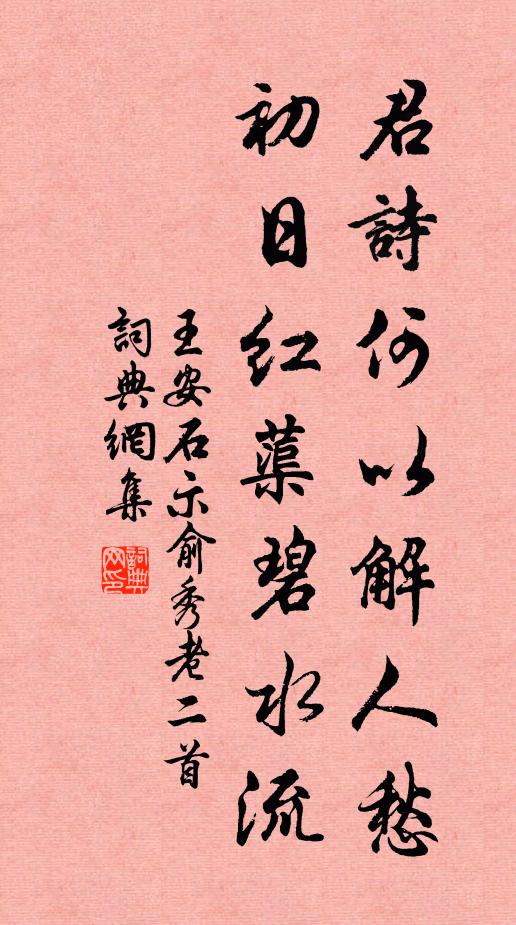 君詩何以解人愁
初日紅蕖碧水流
王安石示俞秀老二首
詞典網集
詞典网印